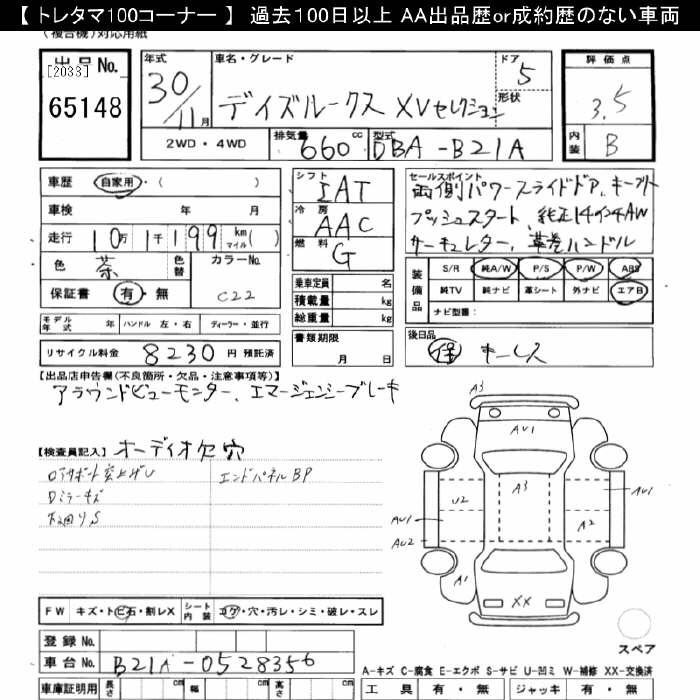 【 トレタマ100コーナー 】 過去100日以上 AA出品歴or成約歴のない車両
(複合機)対応用紙
出品No. [2033] 65148
年式 30/11月
車名・グレード デイズルークス XVセレクション
ドア 5 形状
2WD・4WD 排気量 660cc 型式 DBA-B21A
評価点 3.5
内装 B
車歴 自家用・( )
車検 年 月
走行 10万1千199 km マイル( )
色 茶 色替 カラーNo. C22
保証書 有・無
シフト IAT
冷房 AAC
燃料 G
乗車定員 名
積載量 kg
総重量 kg
書類期限 月 日
セールスポイント
両側パワースライドドア、キーフリー
プッシュスタート、純正14インチAW
サーキュレター、革巻ハンドル
装備品 S/R 純A/W P/S P/W ABS
純TV 純ナビ 革シート 外ナビ エアB
ナビ型番:
モデル年式 年 ハンドル 左・右 ディーラー・並行
リサイクル料金 8230 円 預託済
後日品 保 キーレス
【出品店申告欄(不良箇所・欠品・注意事項等)】
アラウンドビューモニター、エマージェンシーブレーキ
【検査員記入】 オーディオ欠穴
ロアサポート突上げU エンドパネルBP
Dミラーキズ
下廻りS
A3
AU1
U2 A3 AU1
AU1 A2
AU2
A1
XX
スペア
FW キズ・トビ石・割レX シート内装 コゲ・穴・汚レ・シミ・破レ・スレ
登録No.
車台No. B21A-0528356
車庫証明用 長さ cm 幅 cm 高さ cm
A-キズ C-腐食 E-エクボ S-サビ U-凹ミ W-補修 XX-交換済
工具 有・無 ジャッキ 有・無